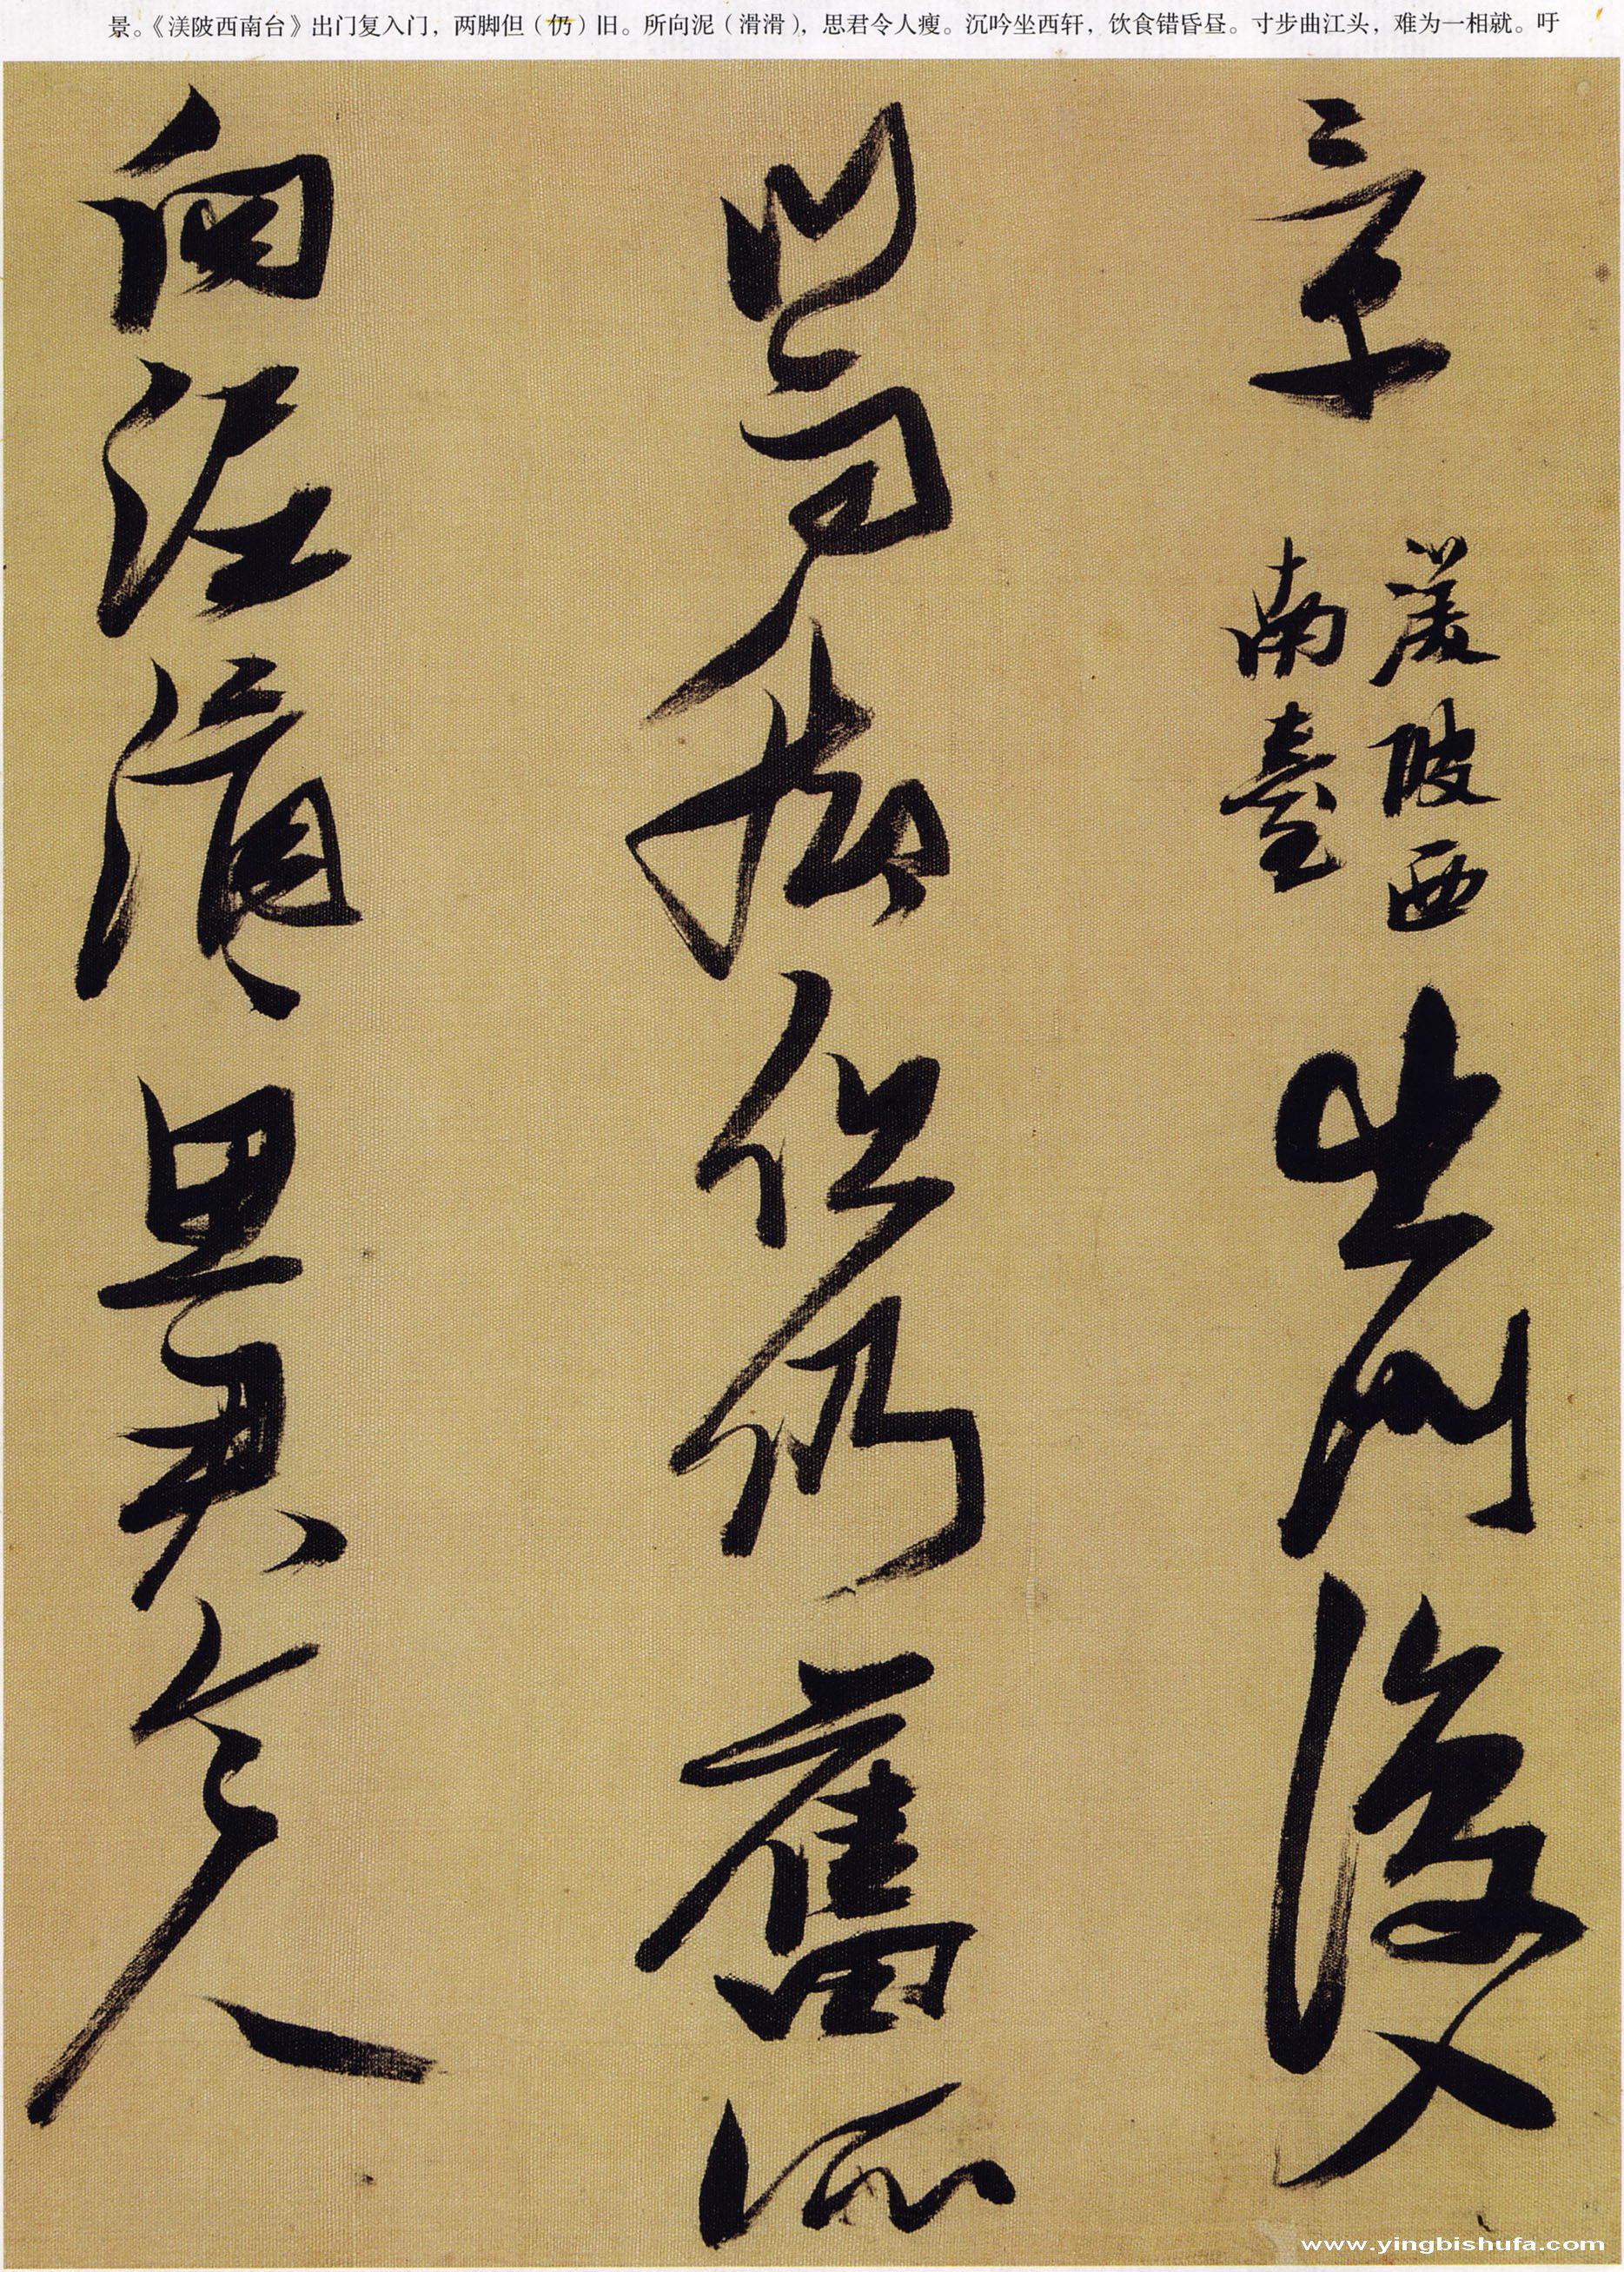 景。《渼陂西南台》出门复入门，两脚但（仍）旧。所向泥（滑滑），思君令人瘦。沉吟坐西轩，饮食错昏昼。寸步曲江头，难为一相就。吁
渼陂西
南臺
出門復入
門雨脚但仍舊所
向泥滑〻思君令人
www.yingbishufa.com